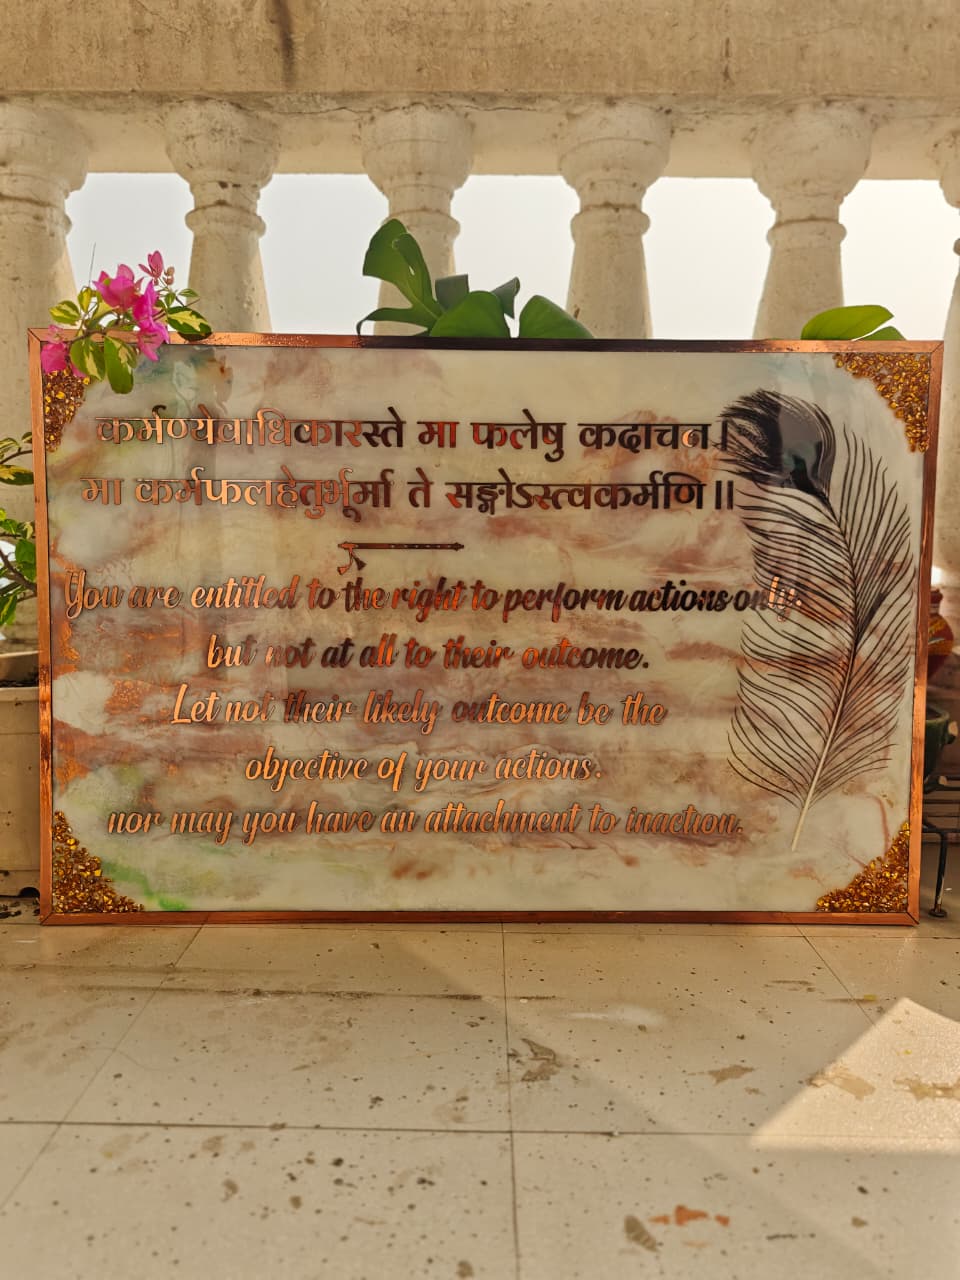 कर्मण्येवाधिकारस्ते मा फलेषु कदाचन।
मा कर्मफलहेतुर्भूर्मा ते सङ्गोऽस्त्वकर्मणि॥
You are entitled to the right to perform actions only,
but not at all to their outcome.
Let not their likely outcome be the
objective of your actions.
nor may you have an attachment to inaction.